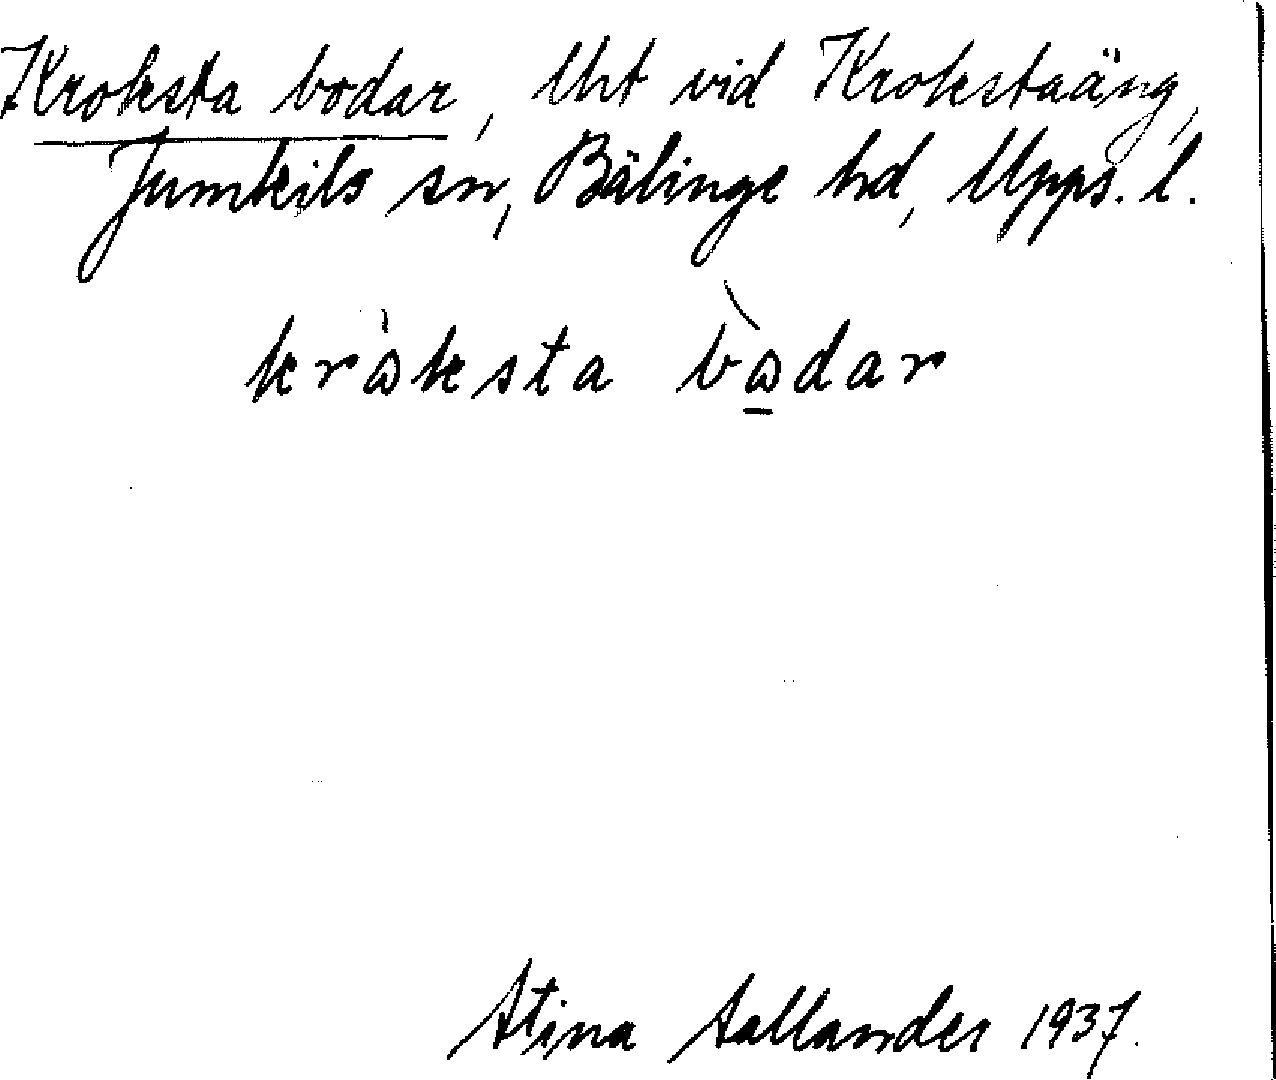 Kroksta bodar, Urt vid Krokstaäng,
Jumkils sn, Bälinge hd, Upps. l.
kròksta bòdar
Stina Sallander 1937.